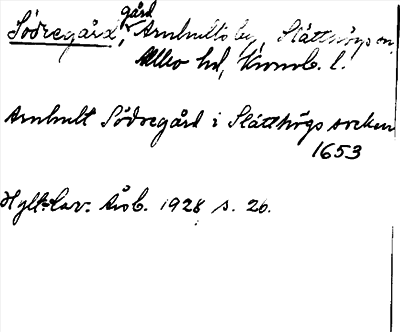 Södregård, gård, Arnhults by, Slätthögs sn,
Allbo hd, Kronob. l.
Arnhult Södregård i Slätthögs socken
1653
Hylt-Cav. Årsb. 1928 s. 26.